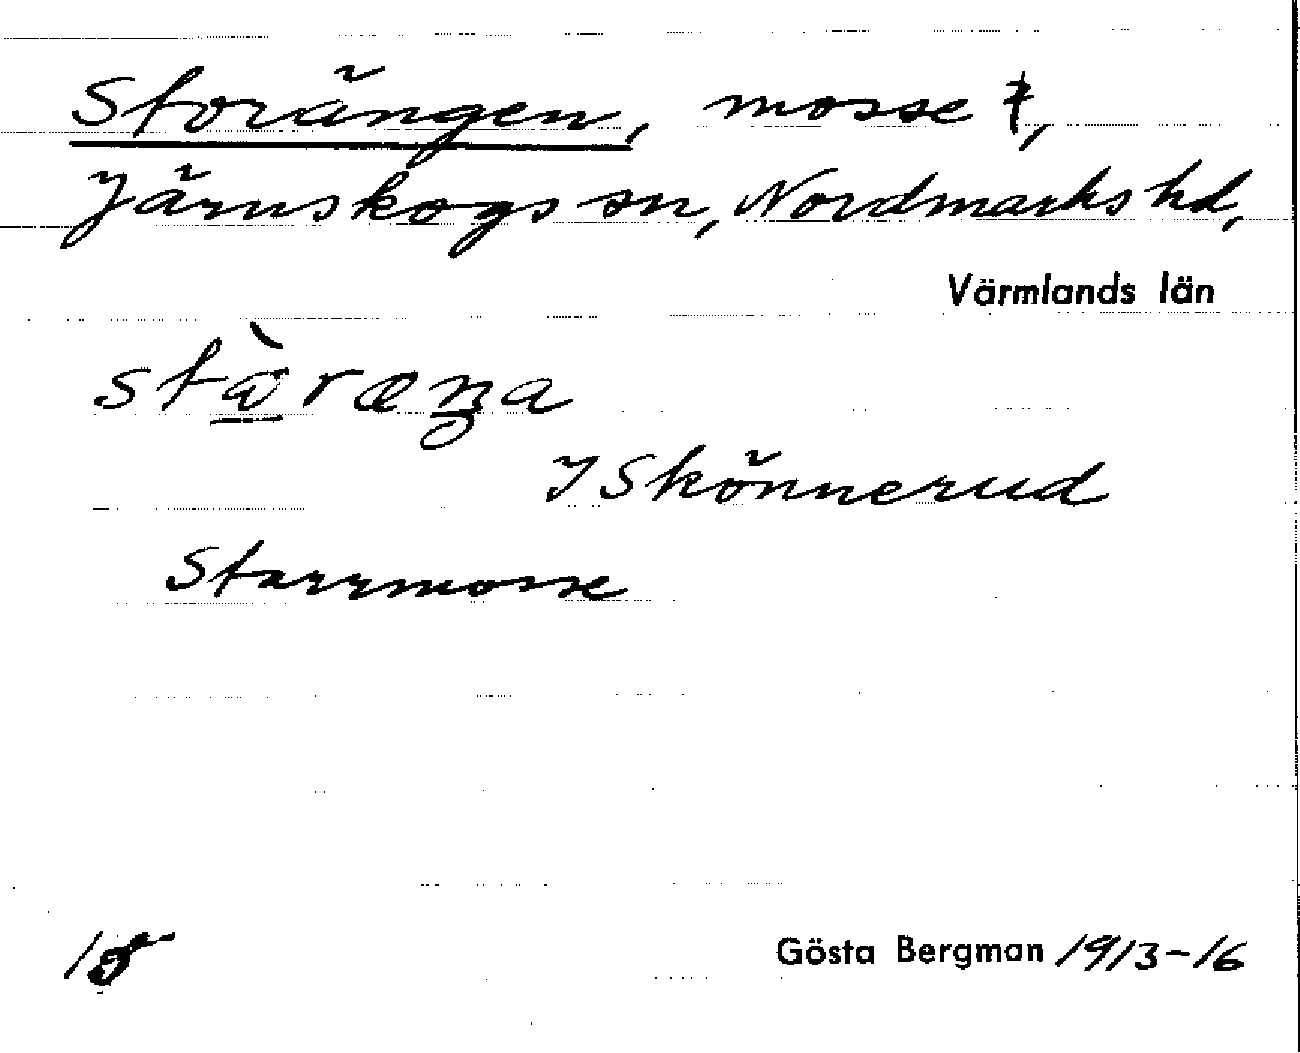 Storängen, mosse ‡,
Järnskogs sn, Nordmarks hd,
Värmlands län
stὼræŋa
I Skönnerud
Starrmosse
Gösta Bergman 1913-16